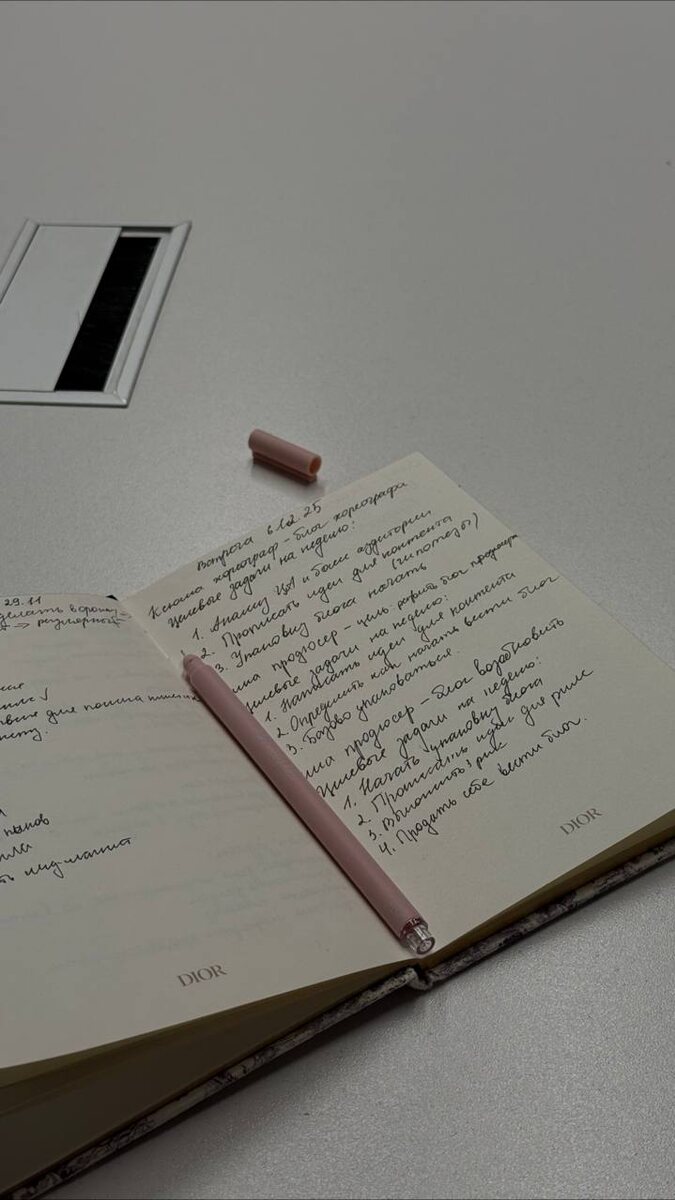 29.11
делать воронку
→ регулярный
для поиска
лид-магнит
DIOR
Встреча 6.12.25
Ксюша хореограф - блог хореографа
Целевые задачи на неделю:
1. Анализ ЦА и болей аудитории
2. Прописать идеи для контента
(гипотезы)
3. Упаковку блога начать
продюсер - цель: развить блог продюсера
Целевые задачи на неделю:
1. Написать идеи для контента
2. Определить как начать вести блог
3. Базово упаковаться.
продюсер - блог возобновить
Целевые задачи на неделю:
1. Начать упаковку блога
2. Прописать идеи для рилс
3. Выложить 1 рилс
4. Продать себе вести блог.
DIOR